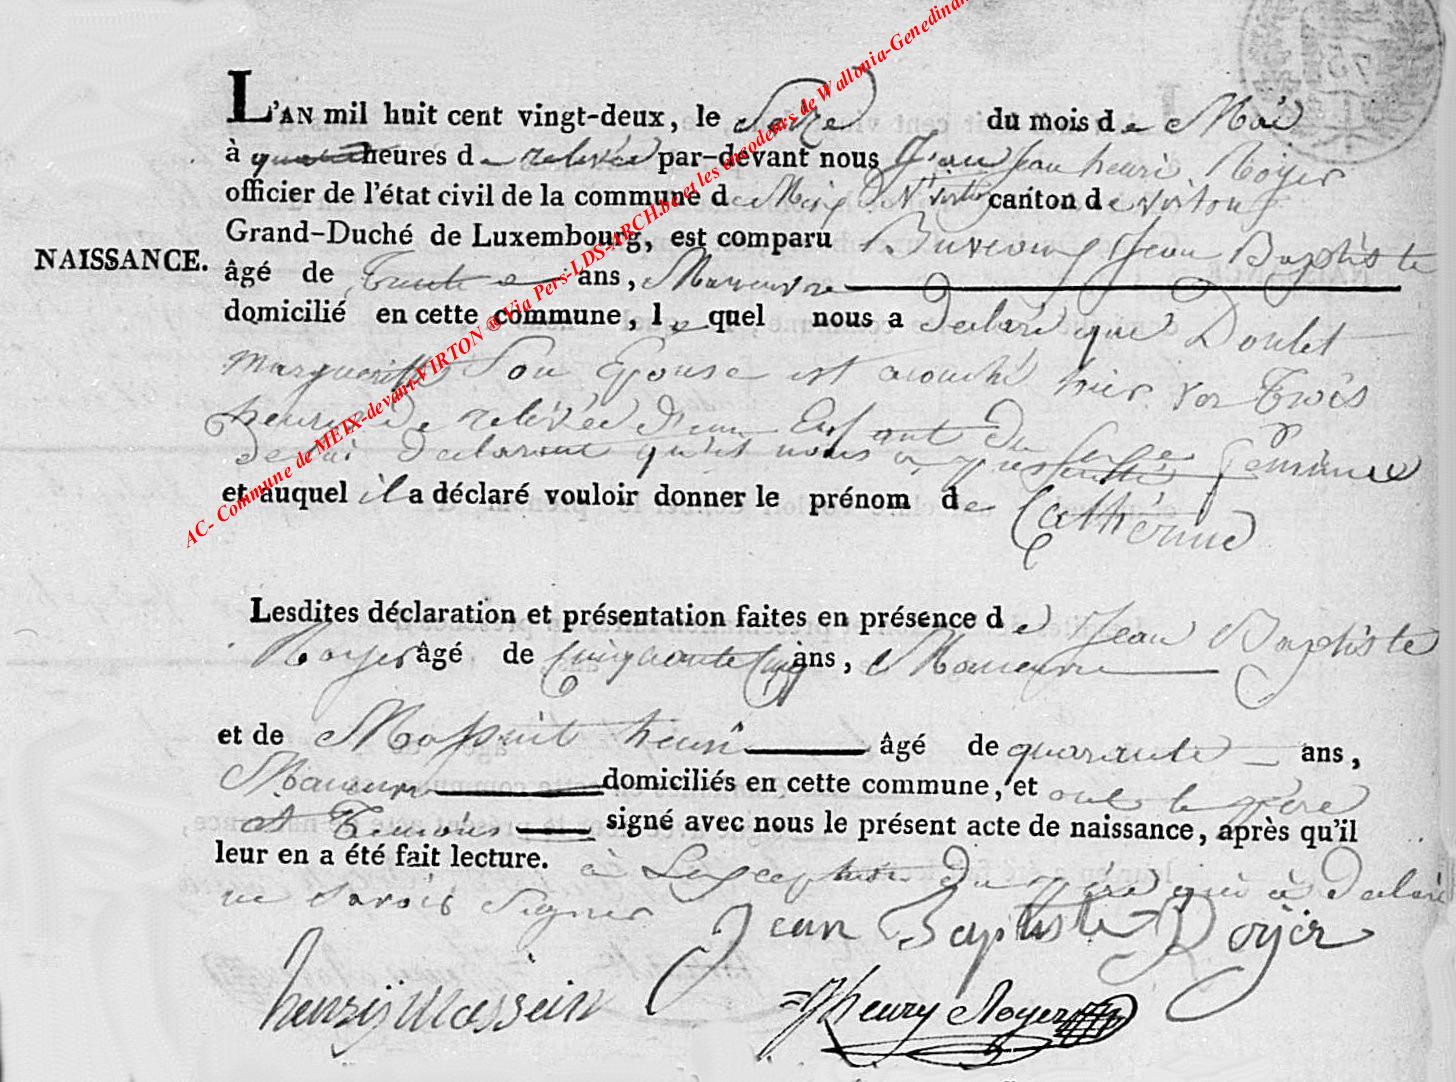 L'AN mil huit cent vingt-deux, le Seize du mois de Mai
à quatre heures de relevée par-devant nous Jean henri Royer
officier de l'état civil de la commune de Meix Dt Virton canton de virton
Grand-Duché de Luxembourg, est comparu Jean Baptiste
NAISSANCE.
âgé de Trente ans, Manœuvre
domicilié en cette commune, le quel nous a Declaré que Doulet
Marguerite Son Epouse est acouché hier vor Trois
heures De relevée d'un Enfant du Sexe feminin
De lui declarant qu'il nous a presenté
et auquel il a déclaré vouloir donner le prénom de Catherine
Lesdites déclaration et présentation faites en présence de Jean Baptiste
Royer âgé de Cinquante Cinq ans, Manœuvre
et de Massuit henri âgé de quarante ans,
Manœuvre domiciliés en cette commune, et ont le père
et Temoins signé avec nous le présent acte de naissance, après qu'il
leur en a été fait lecture. à Lexception Du père qui à Declaré
ne savoir Signer
Jean Baptiste Royer
henrÿ Massein
JHenry Royer
AC- Commune de MEIX-devant-VIRTON @ Via Pers-LDS-ARCH.be et les encodeurs de Wallonia-Genedinan